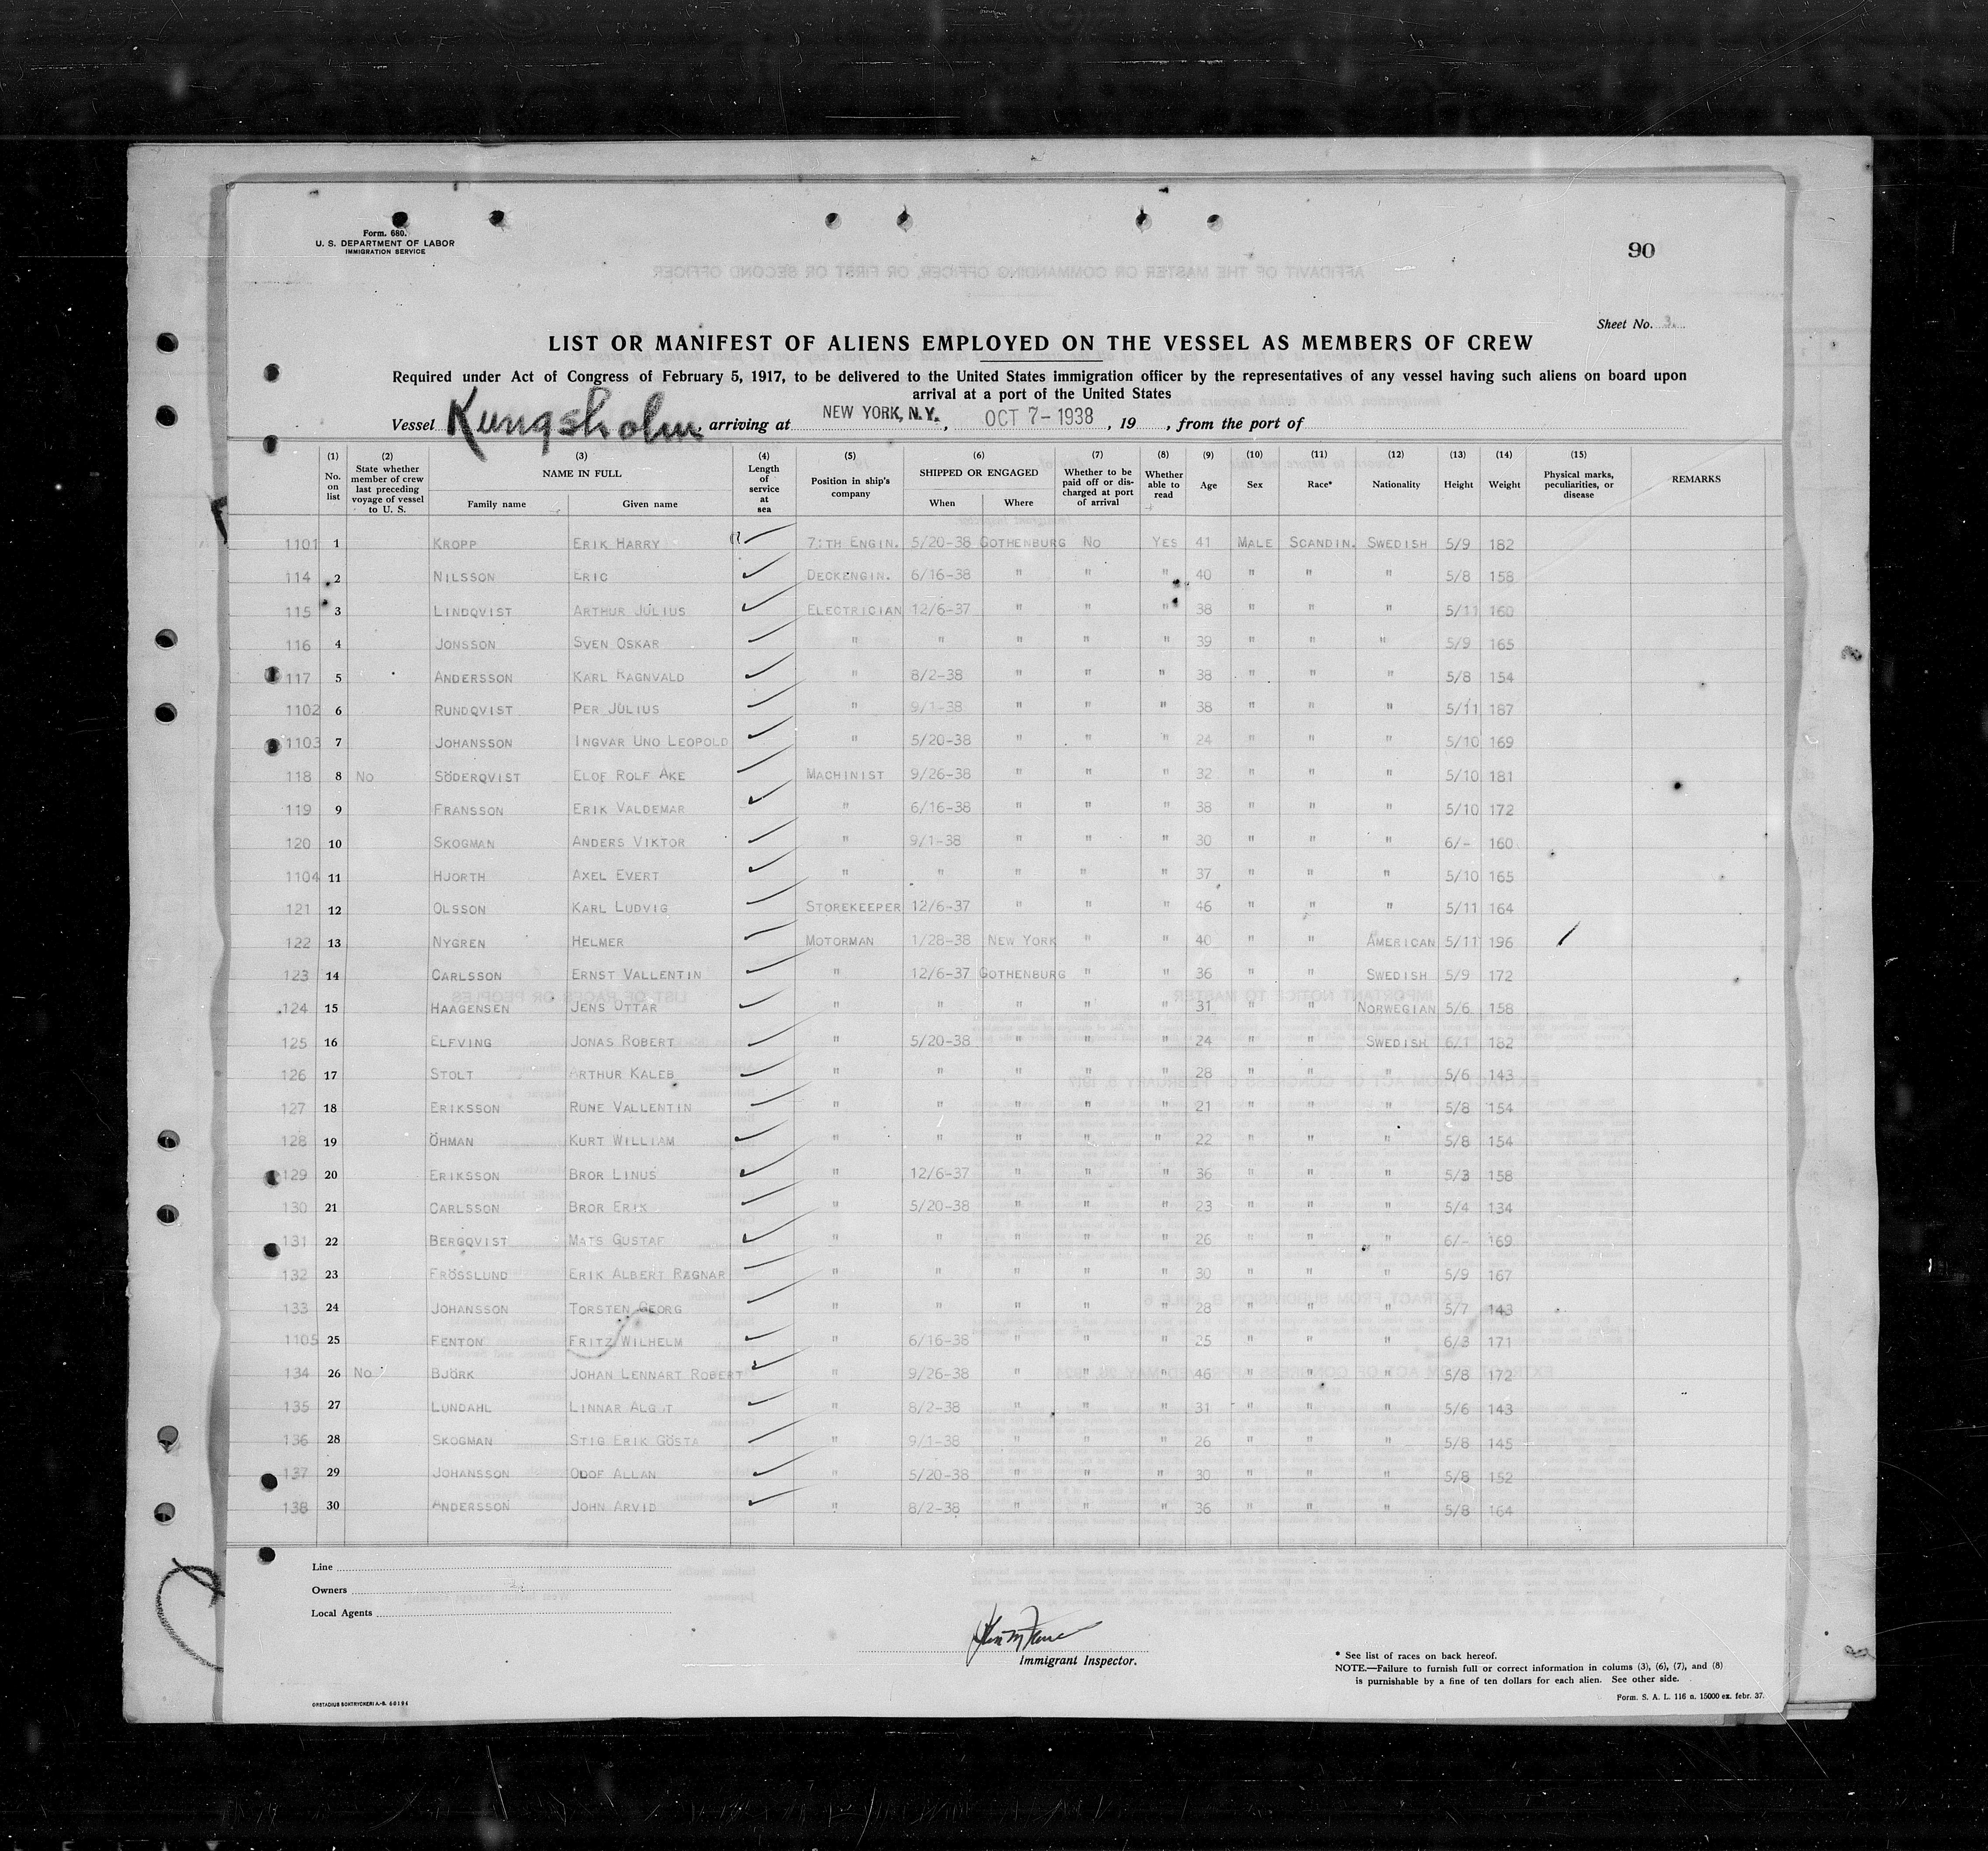 Form. 680.
U. S. DEPARTMENT OF LABOR
IMMIGRATION SERVICE
90
Sheet No. 3.
LIST OR MANIFEST OF ALIENS EMPLOYED ON THE VESSEL AS MEMBERS OF CREW
Required under Act of Congress of February 5, 1917, to be delivered to the United States immigration officer by the representatives of any vessel having such aliens on board upon
arrival at a port of the United States
Vessel Kungsholm, arriving at NEW YORK, N.Y., OCT 7-1938, 19 , from the port of
(1) No. on list (2) State whether member of crew last preceding voyage of vessel to U. S. (3) NAME IN FULL Family name Given name (4) Length of service at sea (5) Position in ship's company (6) SHIPPED OR ENGAGED When Where (7) Whether to be paid off or discharged at port of arrival (8) Whether able to read (9) Age (10) Sex (11) Race* (12) Nationality (13) Height (14) Weight (15) Physical marks, peculiarities, or disease REMARKS
1101 1 KROPP ERIK HARRY 7:TH ENGIN. 5/20-38 GOTHENBURG NO YES 41 MALE SCANDIN. SWEDISH 5/9 182
114 2 NILSSON ERIC DECKENGIN. 6/16-38 " " " 40 " " " 5/8 158
115 3 LINDQVIST ARTHUR JULIUS ELECTRICIAN 12/6-37 " " " 38 " " " 5/11 160
116 4 JONSSON SVEN OSKAR " " " " " 39 " " " 5/9 165
117 5 ANDERSSON KARL RAGNVALD " 8/2-38 " " " 38 " " " 5/8 154
1102 6 RUNDQVIST PER JULIUS " 9/1-38 " " " 38 " " " 5/11 187
1103 7 JOHANSSON INGVAR UNO LEOPOLD " 5/20-38 " " " 24 " " " 5/10 169
118 8 NO SÖDERQVIST ELOF ROLF AKE MACHINIST 9/26-38 " " " 32 " " " 5/10 181
119 9 FRANSSON ERIK VALDEMAR " 6/16-38 " " " 38 " " " 5/10 172
120 10 SKOGMAN ANDERS VIKTOR " 9/1-38 " " " 30 " " " 6/- 160
1104 11 HJORTH AXEL EVERT " " " " " 37 " " " 5/10 165
121 12 OLSSON KARL LUDVIG STOREKEEPER 12/6-37 " " " 46 " " " 5/11 164
122 13 NYGREN HELMER MOTORMAN 1/28-38 NEW YORK " " 40 " " AMERICAN 5/11 196
123 14 CARLSSON ERNST VALLENTIN " 12/6-37 GOTHENBURG " " 36 " " SWEDISH 5/9 172
124 15 HAAGENSEN JENS OTTAR " " " " " 31 " " NORWEGIAN 5/6 158
125 16 ELFVING JONAS ROBERT " 5/20-38 " " " 24 " " SWEDISH 6/1 182
126 17 STOLT ARTHUR KALEB " " " " " 28 " " " 5/6 143
127 18 ERIKSSON RUNE VALLENTIN " " " " " 21 " " " 5/8 154
128 19 ÖHMAN KURT WILLIAM " " " " " 22 " " " 5/8 154
129 20 ERIKSSON BROR LINUS " 12/6-37 " " " 36 " " " 5/3 158
130 21 CARLSSON BROR ERIK " 5/20-38 " " " 23 " " " 5/4 134
131 22 BERGQVIST MATS GUSTAF " " " " " 26 " " " 6/- 169
132 23 FRÖSSLUND ERIK ALBERT RAGNAR " " " " " 30 " " " 5/9 167
133 24 JOHANSSON TORSTEN GEORG " " " " " 28 " " " 5/7 143
1105 25 FENTON FRITZ WILHELM " 6/16-38 " " " 25 " " " 6/3 171
134 26 NO BJÖRK JOHAN LENNART ROBERT " 9/26-38 " " " 46 " " " 5/8 172
135 27 LUNDAHL LINNAR ALGOT " 8/2-38 " " " 31 " " " 5/6 143
136 28 SKOGMAN STIG ERIK GÖSTA " 9/1-38 " " " 26 " " " 5/8 145
137 29 JOHANSSON OLOF ALLAN " 5/20-38 " " " 30 " " " 5/8 152
138 30 ANDERSSON JOHN ARVID " 8/2-38 " " " 36 " " " 5/8 164
Line
Owners
Local Agents
Immigrant Inspector.
* See list of races on back hereof.
NOTE.—Failure to furnish full or correct information in colums (3), (6), (7), and (8)
is punishable by a fine of ten dollars for each alien. See other side.
Form. S. A. L. 116 n. 15000 ex. febr. 37.
ORSTADIUS BOKTRYCKERI A.-B. 60194